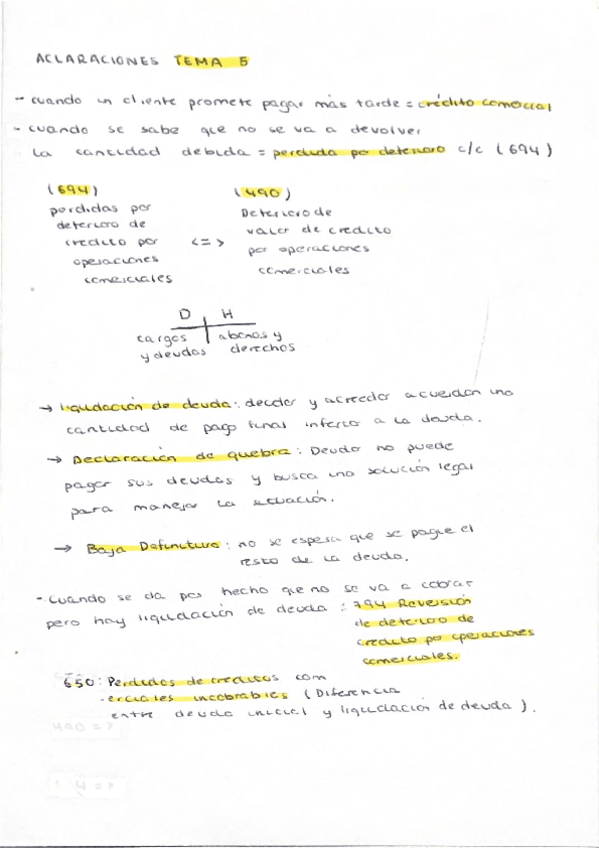 ACLARACIONES TEMA 5
- cuando un cliente promete pagar más tarde = crédito comercial
- cuando se sabe que no se va a devolver
la cantidad debida = perdida por deterioro c/c (694)
(694)
perdidas por
deterioro de
credito por
operaciones
comerciales
<=>
(490)
Deterioro de
valor de credito
por operaciones
comerciales
D H
cargos abonos y
y deudas derechos
→ liquidación de deuda: deudor y acreedor acuerdan una
cantidad de pago final inferior a la deuda.
→ Declaración de quebra: Deudor no puede
pagar sus deudas y busca una solución legal
para manejar la situación.
→ Baja Definitiva: no se espera que se pague el
resto de la deuda.
- Cuando se da por hecho que no se va a cobrar
pero hay liquidación de deuda: 794 Reversión
de deterioro de
credito por operaciones
comerciales.
650: Perdidas de creditos com
erciales incobrables (Diferencia
entre deuda inicial y liquidación de deuda).
490 = ?